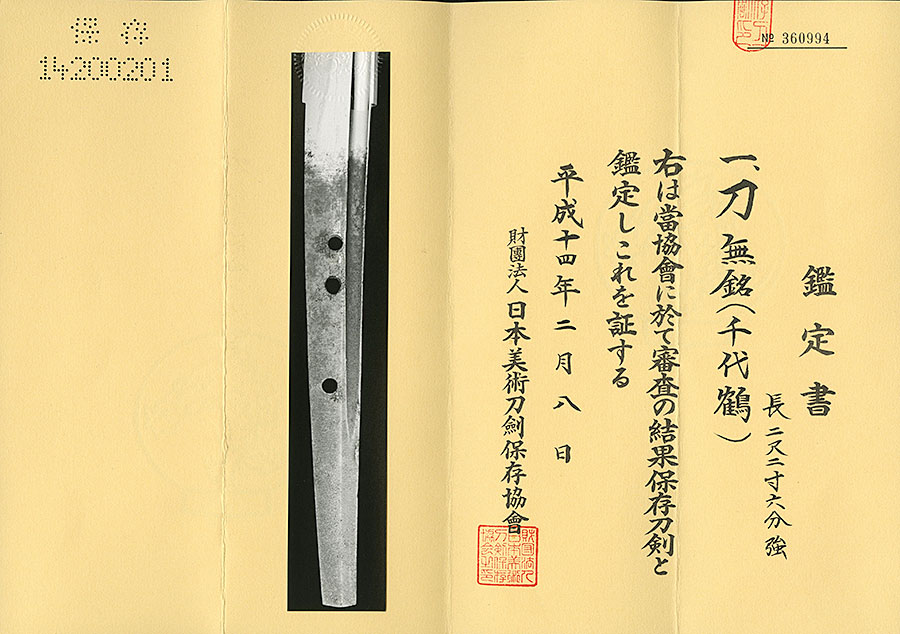 保存
14200201
№ 360994
鑑定書
一、刀 無銘(千代鶴)
長二尺二寸六分強
右は當協會に於て審査の結果保存刀剣と
鑑定しこれを証する
平成十四年二月八日
財團法人 日本美術刀劍保存協會
財団法人日本美術刀剣保存協会印